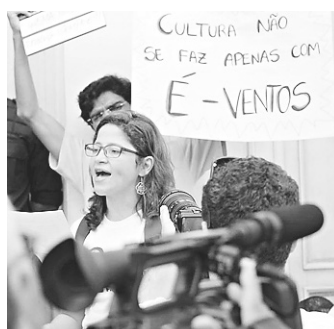 CULTURA NÃO
SE FAZ APENAS COM
É-VENTOS